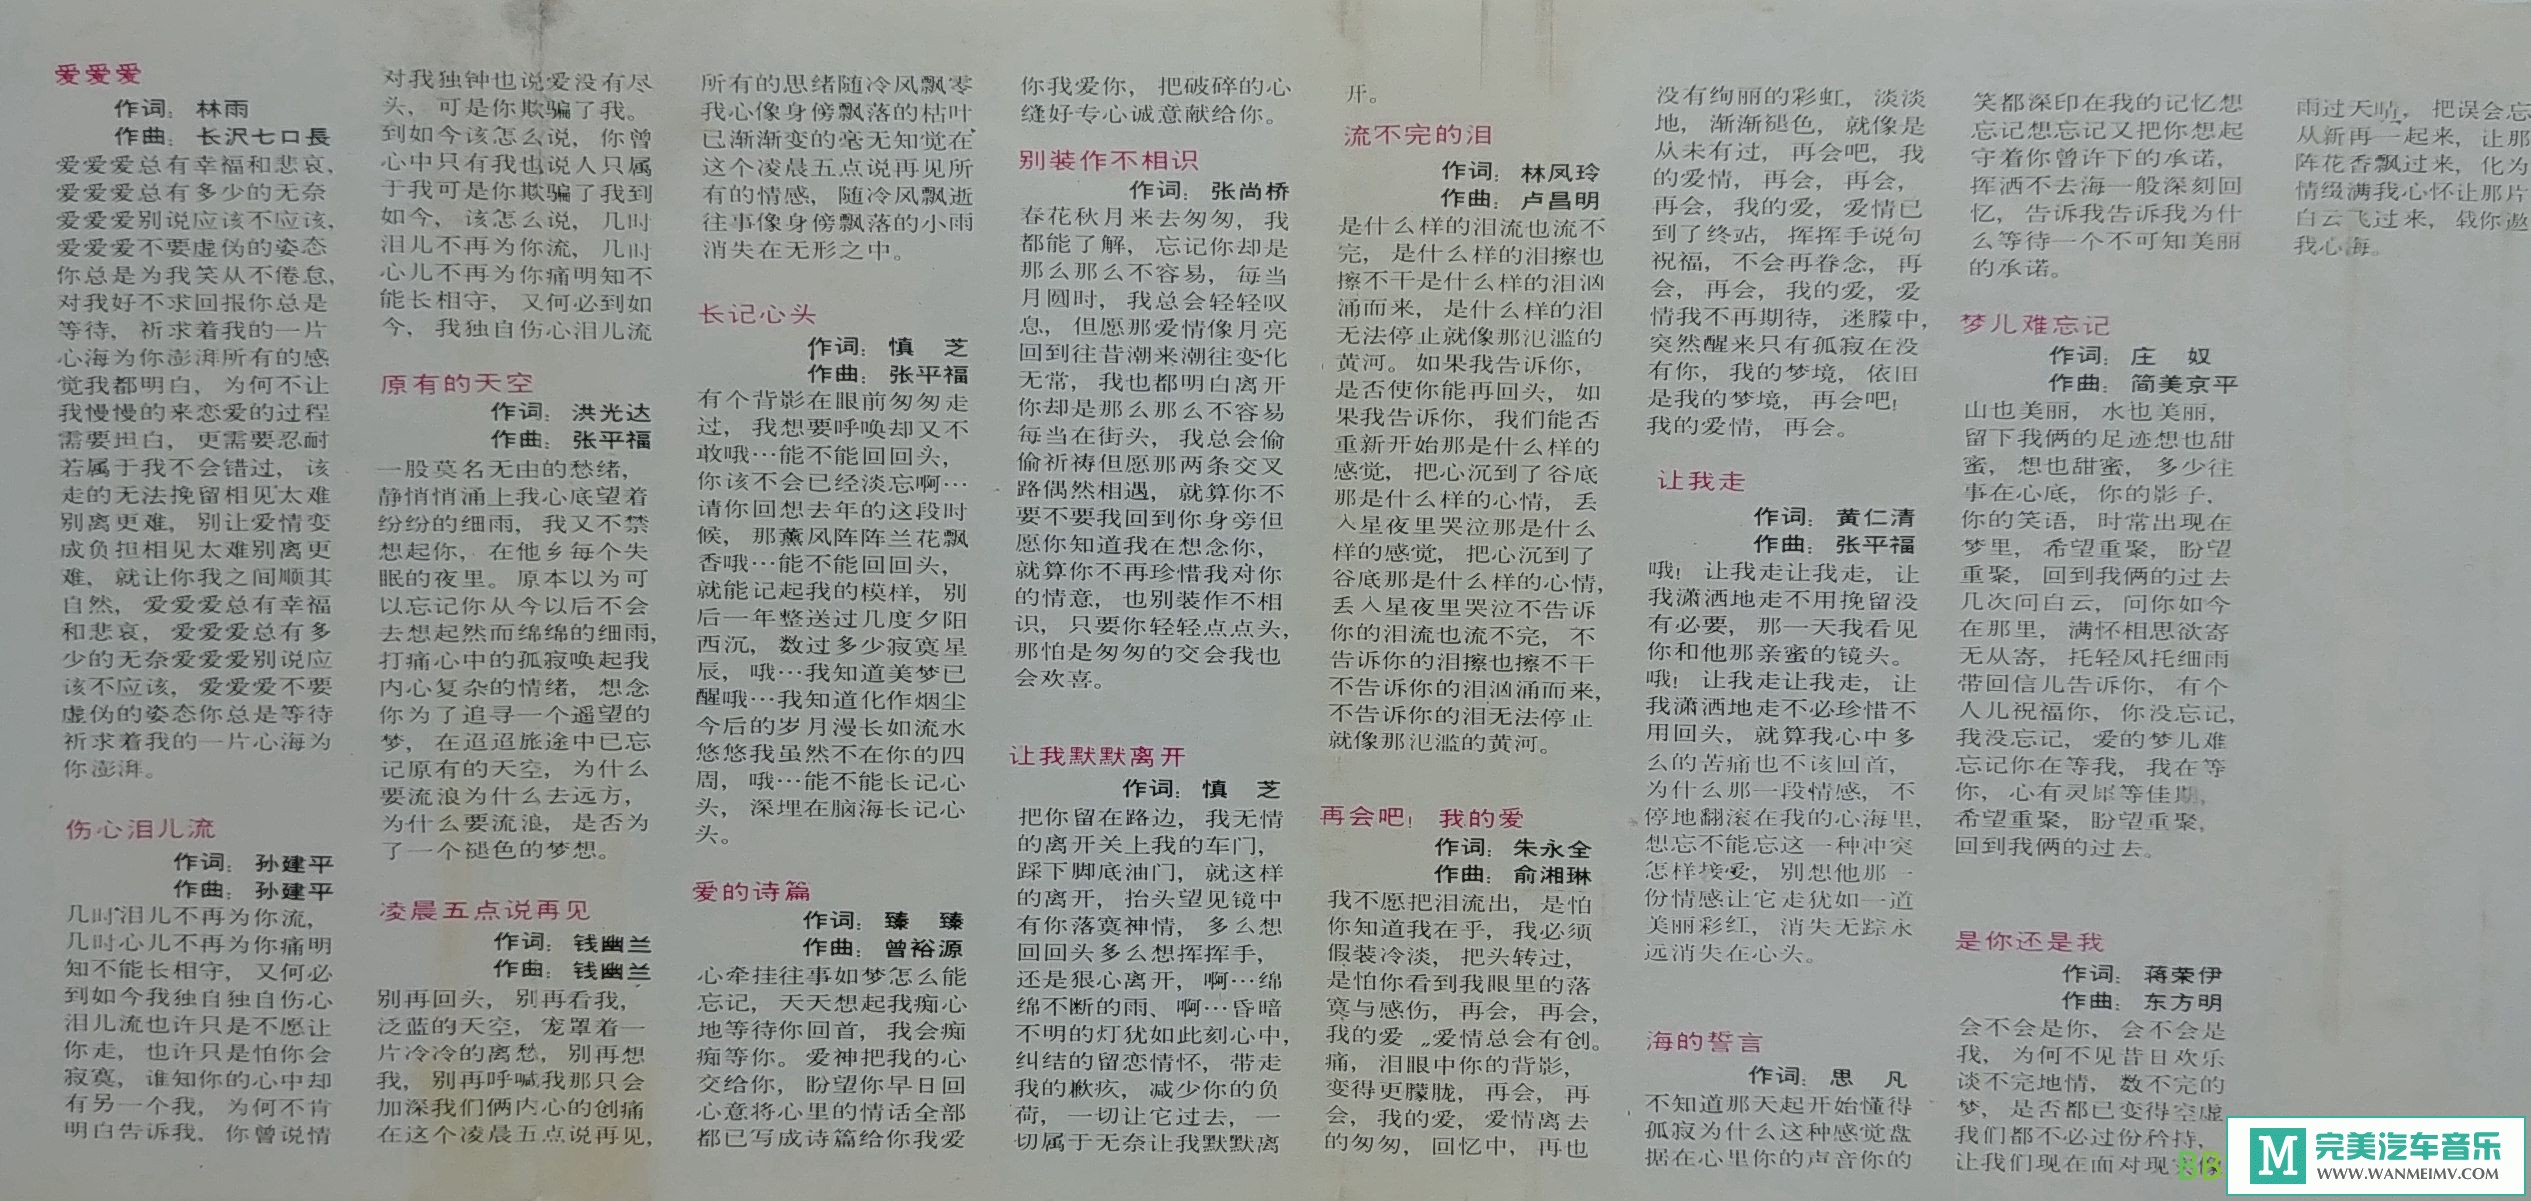 爱爱爱
作词：林雨
作曲：长沢七口長
爱爱爱总有幸福和悲哀，
爱爱爱总有多少的无奈
爱爱爱别说应该不应该，
爱爱爱不要虚伪的姿态
你总是为我笑从不倦怠，
对我好不求回报你总是
等待，祈求着我的一片
心海为你澎湃所有的感
觉我都明白，为何不让
我慢慢的来恋爱的过程
需要坦白，更需要忍耐
若属于我不会错过，该
走的无法挽留相见太难
别离更难，别让爱情变
成负担相见太难别离更
难，就让你我之间顺其
自然，爱爱爱总有幸福
和悲哀，爱爱爱总有多
少的无奈爱爱爱别说应
该不应该，爱爱爱不要
虚伪的姿态你总是等待
祈求着我的一片心海为
你澎湃。
伤心泪儿流
作词：孙建平
作曲：孙建平
几时泪儿不再为你流，
几时心儿不再为你痛明
知不能长相守，又何必
到如今我独自独自伤心
泪儿流也许只是不愿让
你走，也许只是怕你会
寂寞，谁知你的心中却
有另一个我，为何不肯
明白告诉我，你曾说情
对我独钟也说爱没有尽
头，可是你欺骗了我。
到如今该怎么说，你曾
心中只有我也说人只属
于我可是你欺骗了我到
如今，该怎么说，几时
泪儿不再为你流，几时
心儿不再为你痛明知不
能长相守，又何必到如
今，我独自伤心泪儿流
原有的天空
作词：洪光达
作曲：张平福
一股莫名无由的愁绪，
静悄悄涌上我心底望着
纷纷的细雨，我又不禁
想起你，在他乡每个失
眠的夜里。原本以为可
以忘记你从今以后不会
去想起然而绵绵的细雨，
打痛心中的孤寂唤起我
内心复杂的情绪，想念
你为了追寻一个遥望的
梦，在迢迢旅途中已忘
记原有的天空，为什么
要流浪为什么去远方，
为什么要流浪，是否为
了一个褪色的梦想。
凌晨五点说再见
作词：钱幽兰
作曲：钱幽兰
别再回头，别再看我，
泛蓝的天空，宠罩着一
片冷冷的离愁，别再想
我，别再呼喊我那只会
加深我们俩内心的创痛
在这个凌晨五点说再见，
所有的思绪随冷风飘零
我心像身傍飘落的枯叶
已渐渐变的毫无知觉在
这个凌晨五点说再见所
有的情感，随冷风飘逝
往事像身傍飘落的小雨
消失在无形之中。
长记心头
作词：慎　芝
作曲：张平福
有个背影在眼前匆匆走
过，我想要呼唤却又不
敢哦…能不能回回头，
你该不会已经淡忘啊…
请你回想去年的这段时
候，那薰风阵阵兰花飘
香哦…能不能回回头，
就能记起我的模样，别
后一年整送过几度夕阳
西沉，数过多少寂寞星
辰，哦…我知道美梦已
醒哦…我知道化作烟尘
今后的岁月漫长如流水
悠悠我虽然不在你的四
周，哦…能不能长记心
头，深埋在脑海长记心
头。
爱的诗篇
作词：臻　臻
作曲：曾裕源
心牵挂往事如梦怎么能
忘记，天天想起我痴心
地等待你回首，我会痴
痴等你。爱神把我的心
交给你，盼望你早日回
心意将心里的情话全部
都已写成诗篇给你我爱
你我爱你，把破碎的心
缝好专心诚意献给你。
别装作不相识
作词：张尚桥
春花秋月来去匆匆，我
都能了解，忘记你却是
那么那么不容易，每当
月圆时，我总会轻轻叹
息，但愿那爱情像月亮
回到往昔潮来潮往变化
无常，我也都明白离开
你却是那么那么不容易
每当在街头，我总会偷
偷祈祷但愿那两条交叉
路偶然相遇，就算你不
要不要我回到你身旁但
愿你知道我在想念你，
就算你不再珍惜我对你
的情意，也别装作不相
识，只要你轻轻点点头，
那怕是匆匆的交会我也
会欢喜。
让我默默离开
作词：慎　芝
把你留在路边，我无情
的离开关上我的车门，
踩下脚底油门，就这样
的离开，抬头望见镜中
有你落寞神情，多么想
回回头多么想挥挥手，
还是狠心离开，啊…绵
绵不断的雨、啊…昏暗
不明的灯犹如此刻心中，
纠结的留恋情怀，带走
我的歉疚，减少你的负
荷，一切让它过去，一
切属于无奈让我默默离
开。
流不完的泪
作词：林凤玲
作曲：卢昌明
是什么样的泪流也流不
完，是什么样的泪擦也
擦不干是什么样的泪汹
涌而来，是什么样的泪
无法停止就像那氾滥的
黄河。如果我告诉你，
是否使你能再回头，如
果我告诉你，我们能否
重新开始那是什么样的
感觉，把心沉到了谷底
那是什么样的心情，丢
入星夜里哭泣那是什么
样的感觉，把心沉到了
谷底那是什么样的心情，
丢入星夜里哭泣不告诉
你的泪流也流不完，不
告诉你的泪擦也擦不干
不告诉你的泪汹涌而来，
不告诉你的泪无法停止
就像那氾滥的黄河。
再会吧！我的爱
作词：朱永全
作曲：俞湘琳
我不愿把泪流出，是怕
你知道我在乎，我必须
假装冷淡，把头转过，
是怕你看到我眼里的落
寞与感伤，再会，再会，
我的爱 〃爱情总会有创。
痛，泪眼中你的背影，
变得更朦胧，再会，再
会，我的爱，爱情离去
的匆匆，回忆中，再也
没有绚丽的彩虹，淡淡
地，渐渐褪色，就像是
从未有过，再会吧，我
的爱情，再会，再会，
再会，我的爱，爱情已
到了终站，挥挥手说句
祝福，不会再眷念，再
会，再会，我的爱，爱
情我不再期待，迷朦中，
突然醒来只有孤寂在没
有你，我的梦境，依旧
是我的梦境，再会吧！
我的爱情，再会。
让我走
作词：黄仁清
作曲：张平福
哦！让我走让我走，让
我潇洒地走不用挽留没
有必要，那一天我看见
你和他那亲蜜的镜头。
哦！让我走让我走，让
我潇洒地走不必珍惜不
用回头，就算我心中多
么的苦痛也不该回首，
为什么那一段情感，不
停地翻滚在我的心海里，
想忘不能忘这一种冲突
怎样接爱，别想他那一
份情感让它走犹如一道
美丽彩红，消失无踪永
远消失在心头。
海的誓言
作词：思　凡
不知道那天起开始懂得
孤寂为什么这种感觉盘
据在心里你的声音你的
笑都深印在我的记忆想
忘记想忘记又把你想起
守着你曾许下的承诺，
挥洒不去海一般深刻回
忆，告诉我告诉我为什
么等待一个不可知美丽
的承诺。
梦儿难忘记
作词：庄　奴
作曲：简美京平
山也美丽，水也美丽，
留下我俩的足迹想也甜
蜜，想也甜蜜，多少往
事在心底，你的影子，
你的笑语，时常出现在
梦里，希望重聚，盼望
重聚，回到我俩的过去
几次问白云，问你如今
在那里，满怀相思欲寄
无从寄，托轻风托细雨
带回信儿告诉你，有个
人儿祝福你，你没忘记，
我没忘记，爱的梦儿难
忘记你在等我，我在等
你，心有灵犀等佳期，
希望重聚，盼望重聚，
回到我俩的过去。
是你还是我
作词：蒋荣伊
作曲：东方明
会不会是你，会不会是
我，为何不见昔日欢乐
谈不完地情，数不完的
梦，是否都已变得空虚
我们都不必过份矜持，
让我们现在面对现
雨过天晴，把误会忘
从新再一起来，让那
阵花香飘过来，化为
情缀满我心怀让那片
白云飞过来，载你遨
我心海。
BB
M 完美汽车音乐
WWW.WANMEIMV.COM